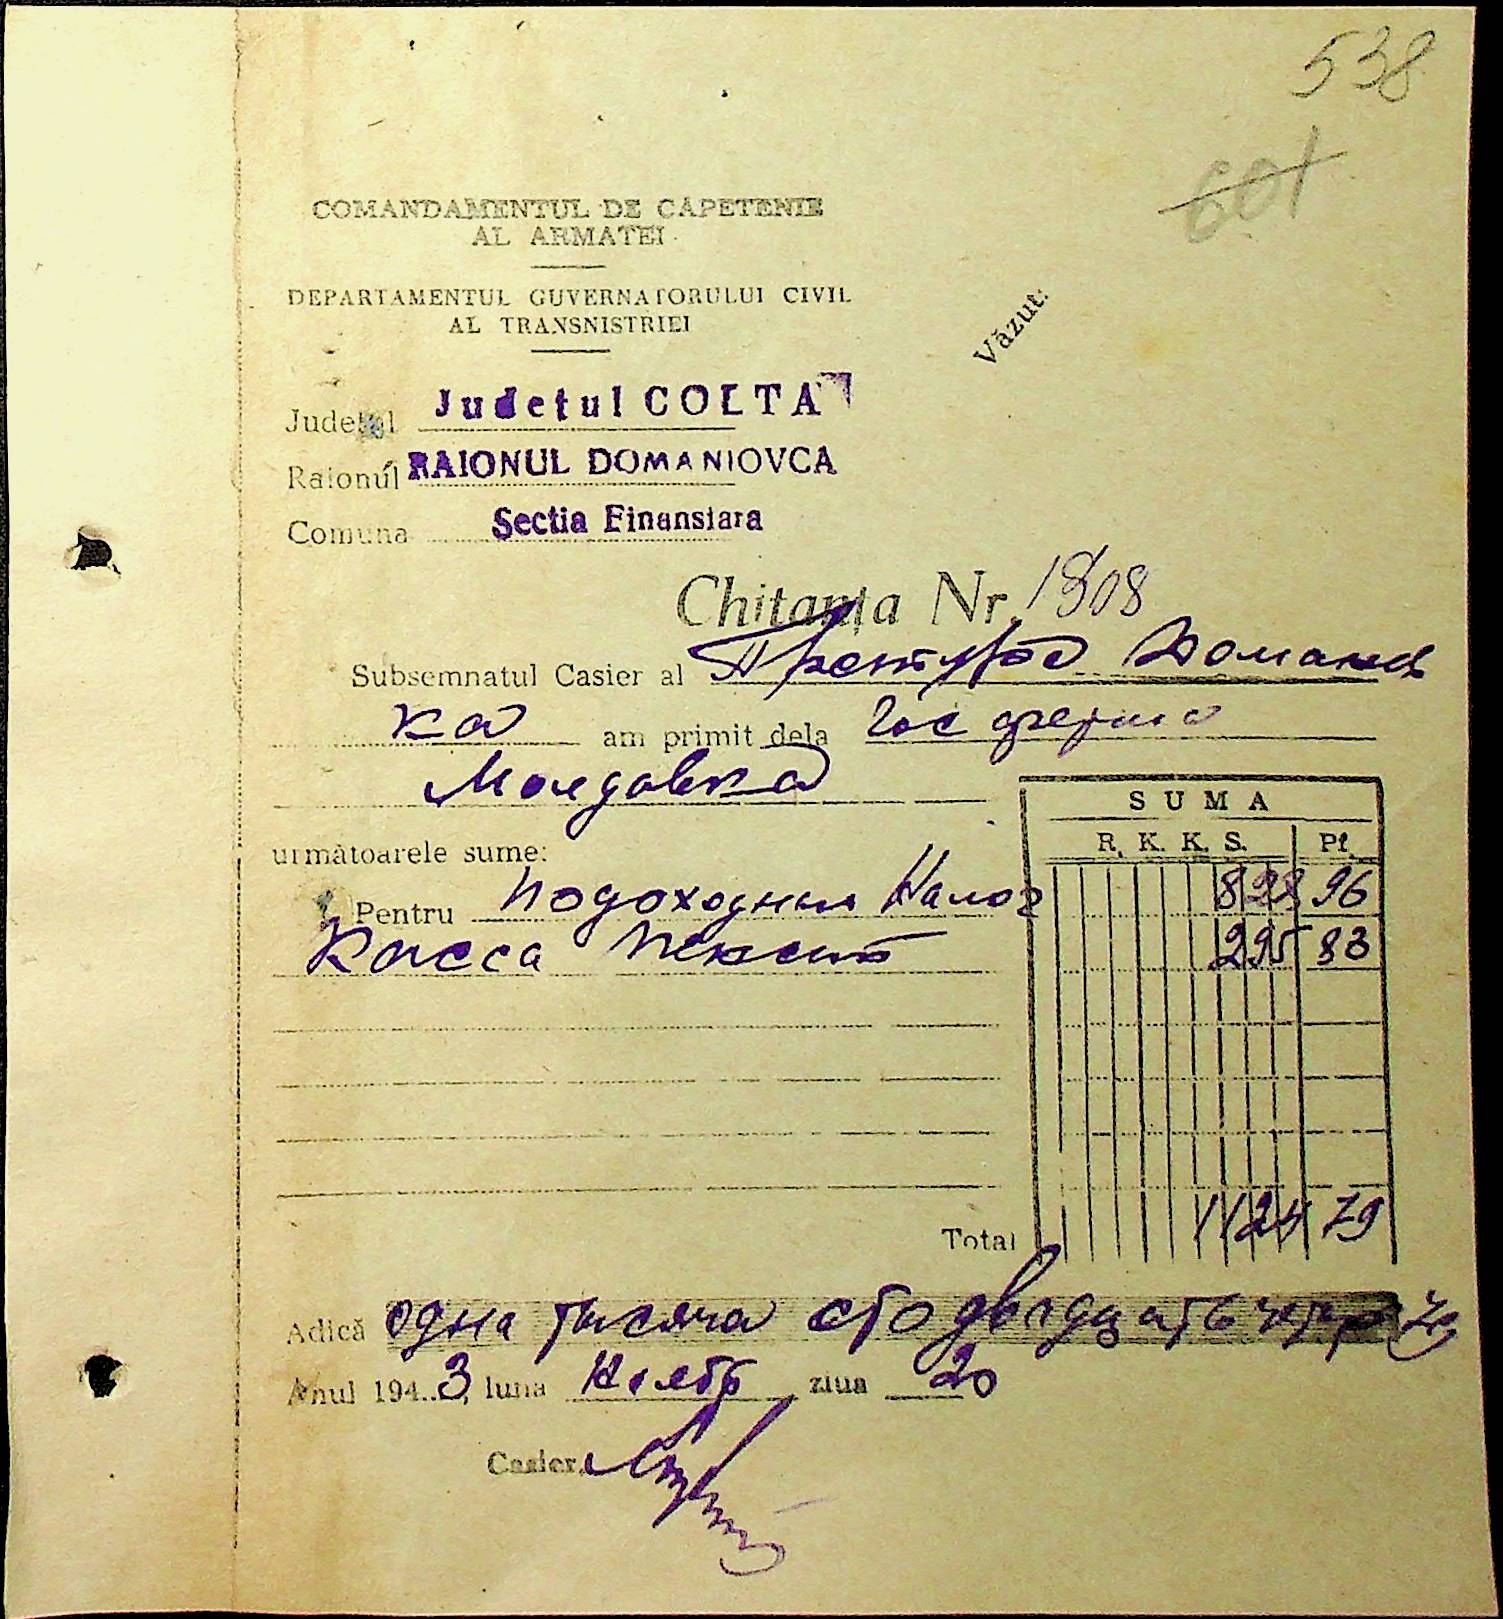 538
601
COMANDAMENTUL DE CAPETENIE
AL ARMATEI
DEPARTAMENTUL GUVERNATORULUI CIVIL
AL TRANSNISTRIEI
Văzut:
Judeţul Judeţul COLTA
Raionul RAIONUL DOMANIOVCA
Comuna Sectia Finansiara
Chitanţa Nr. 1808
Subsemnatul Casier al Претура Доманев
ка am primit dela Гос ферма
Молдавка
SUMA
R. K. K. S. Pf.
următoarele sume:
Pentru Подоходный Налог 828 96
Касса Пенсий 295 83
Total 1124 79
Adică одна тысяча сто двадцать четыре 79
Anul 194..3, luna Ноябр ziua 20
Casier,